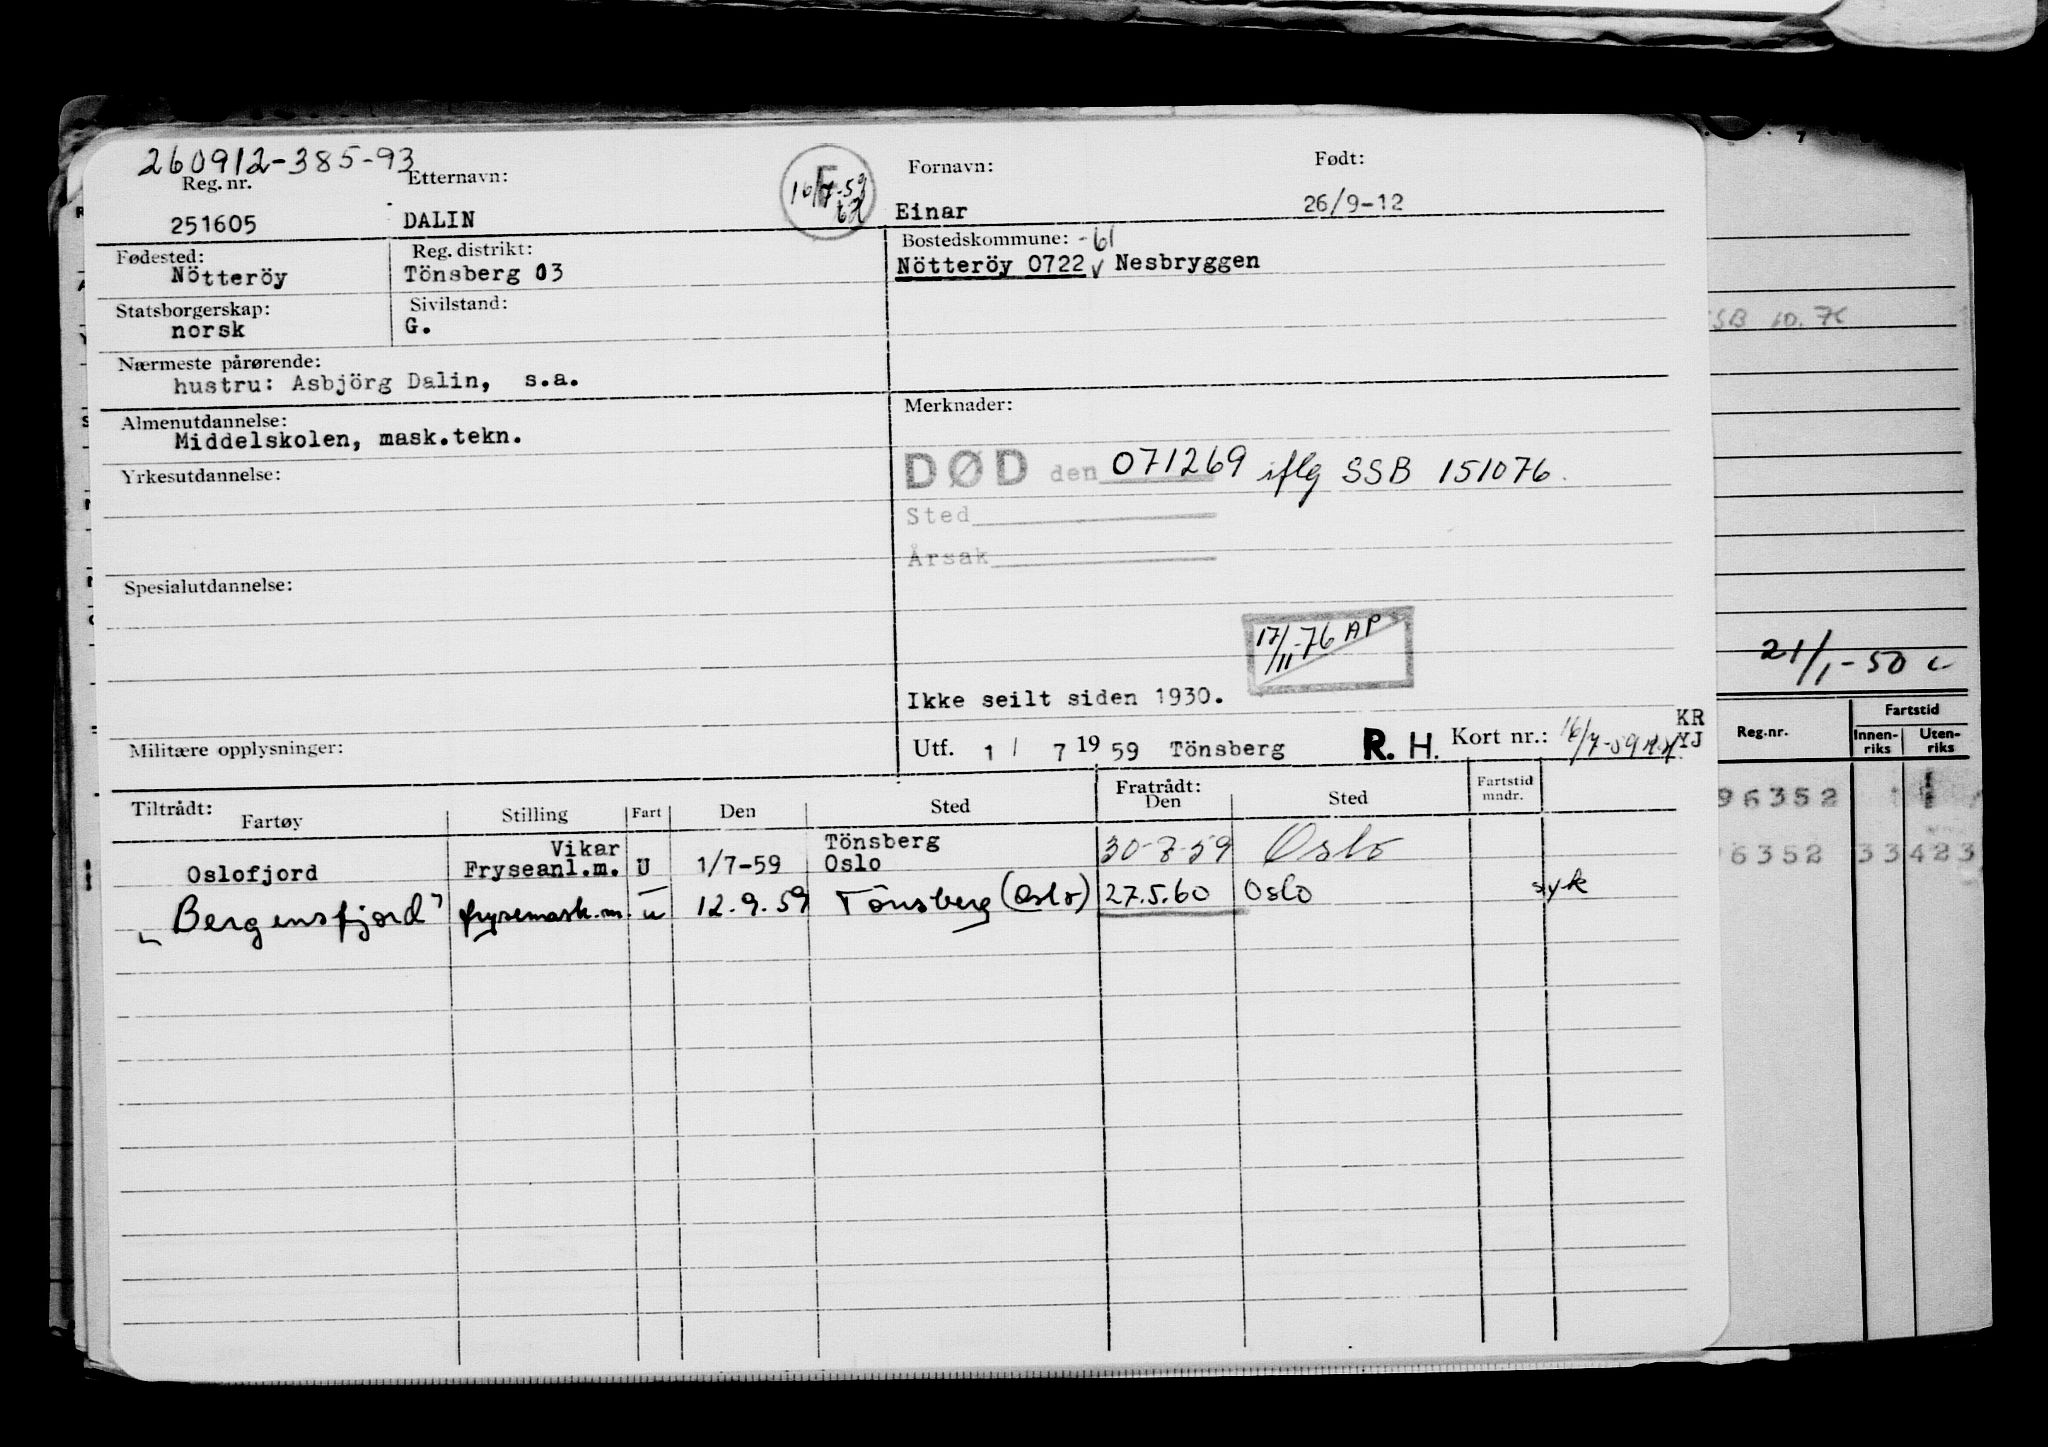 260912-385-93
Reg. nr. Etternavn: Fornavn: Født:
251605 DALIN Einar 26/9-12
Fødested: Reg. distrikt: Bostedskommune: -61
Nötteröy Tönsberg 03 Nötteröy 0722 Nesbryggen
Statsborgerskap: Sivilstand:
norsk G.
Nærmeste pårørende:
hustru: Asbjörg Dalin, s.a.
Almenutdannelse: Merknader:
Middelskolen, mask.tekn.
Yrkesutdannelse:
DØD den 071269 iflg SSB 151076.
Sted
Årsak
Spesialutdannelse:
17/11-76 AP
Ikke seilt siden 1930.
Militære opplysninger: Utf. 1 / 7 19 59 Tönsberg R. H. Kort nr.: 16/7-59
KR
YJ
Tiltrådt: Fratrådt:
Fartøy Stilling Fart Den Sted Den Sted Fartstid mndr.
Vikar Tönsberg
Oslofjord Fryseanl.m. U 1/7-59 Oslo 30-7-59 Oslo
"Bergensfjord" frysemask.m. u 12.9.59 Tönsberg (Oslo) 27.5.60 Oslo syk
SSB 10.76
21/1-50
Reg.nr. Fartstid
Innen-riks Uten-riks
96352
6352 33423